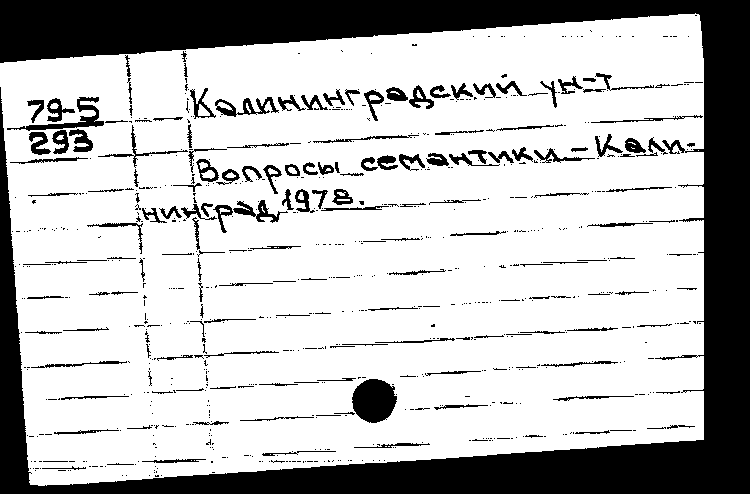 79-5
293
Калининградский ун-т
Вопросы семантики.-Кали-
нинград, 1978.